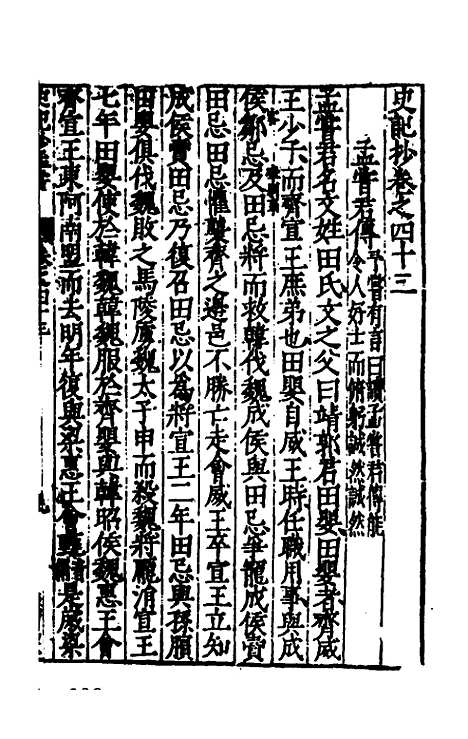 史記抄卷之四十三
孟嘗君傳 予嘗有言曰讀孟嘗君傳能令人好士而俯躬誠然誠然
孟嘗君名文姓田氏文之父曰靖郭君田嬰田嬰者齊威
王少子而齊宣王庶弟也田嬰自威王時任職用事與成
侯鄒忌及田忌將而救韓伐魏成侯與田忌爭寵成侯賣
田忌田忌懼襲齊之邊邑不勝亡走會威王卒宣王立知
成侯賣田忌乃復召田忌以為將宣王二年田忌與孫臏
田嬰俱伐魏敗之馬陵虜魏太子申而殺魏將龐涓宣王
七年田嬰使於韓魏韓魏服於齊嬰與韓昭侯魏惠王會
齊宣王東阿南盟而去明年復與梁惠王會甄是歲梁